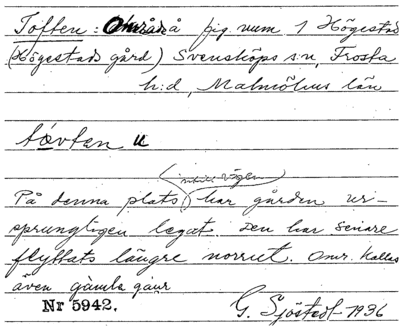 Toften: Område å fig. num 1 Högestad
(Högestads gård) Svensköps s:n, Frosta
h:d, Malmöhus län
tǻvten u
vägen)
På denna plats har gården ur-
sprungligen legat. Den har senare
flyttats längre norrut. Omr. kallas
även gamla gaur
Nr 5942.
G. Sjöstedt 1936